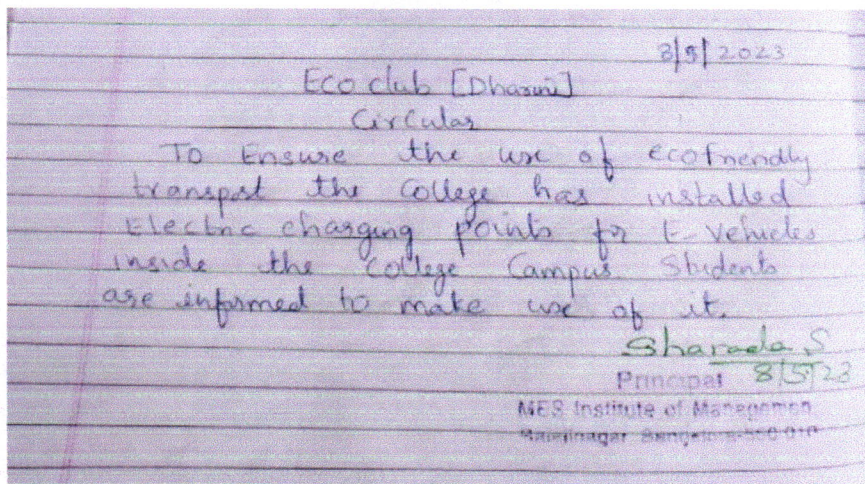 8/5/2023
Eco club [Dharini]
Circular
To Ensure the use of ecofriendly
transport the College has installed
Electric charging points for E-Vehicles
inside the College Campus. Students
are informed to make use of it.
Sharada S
Principal 8/5/23
MES Institute of Managemen
Bangalore-560 010